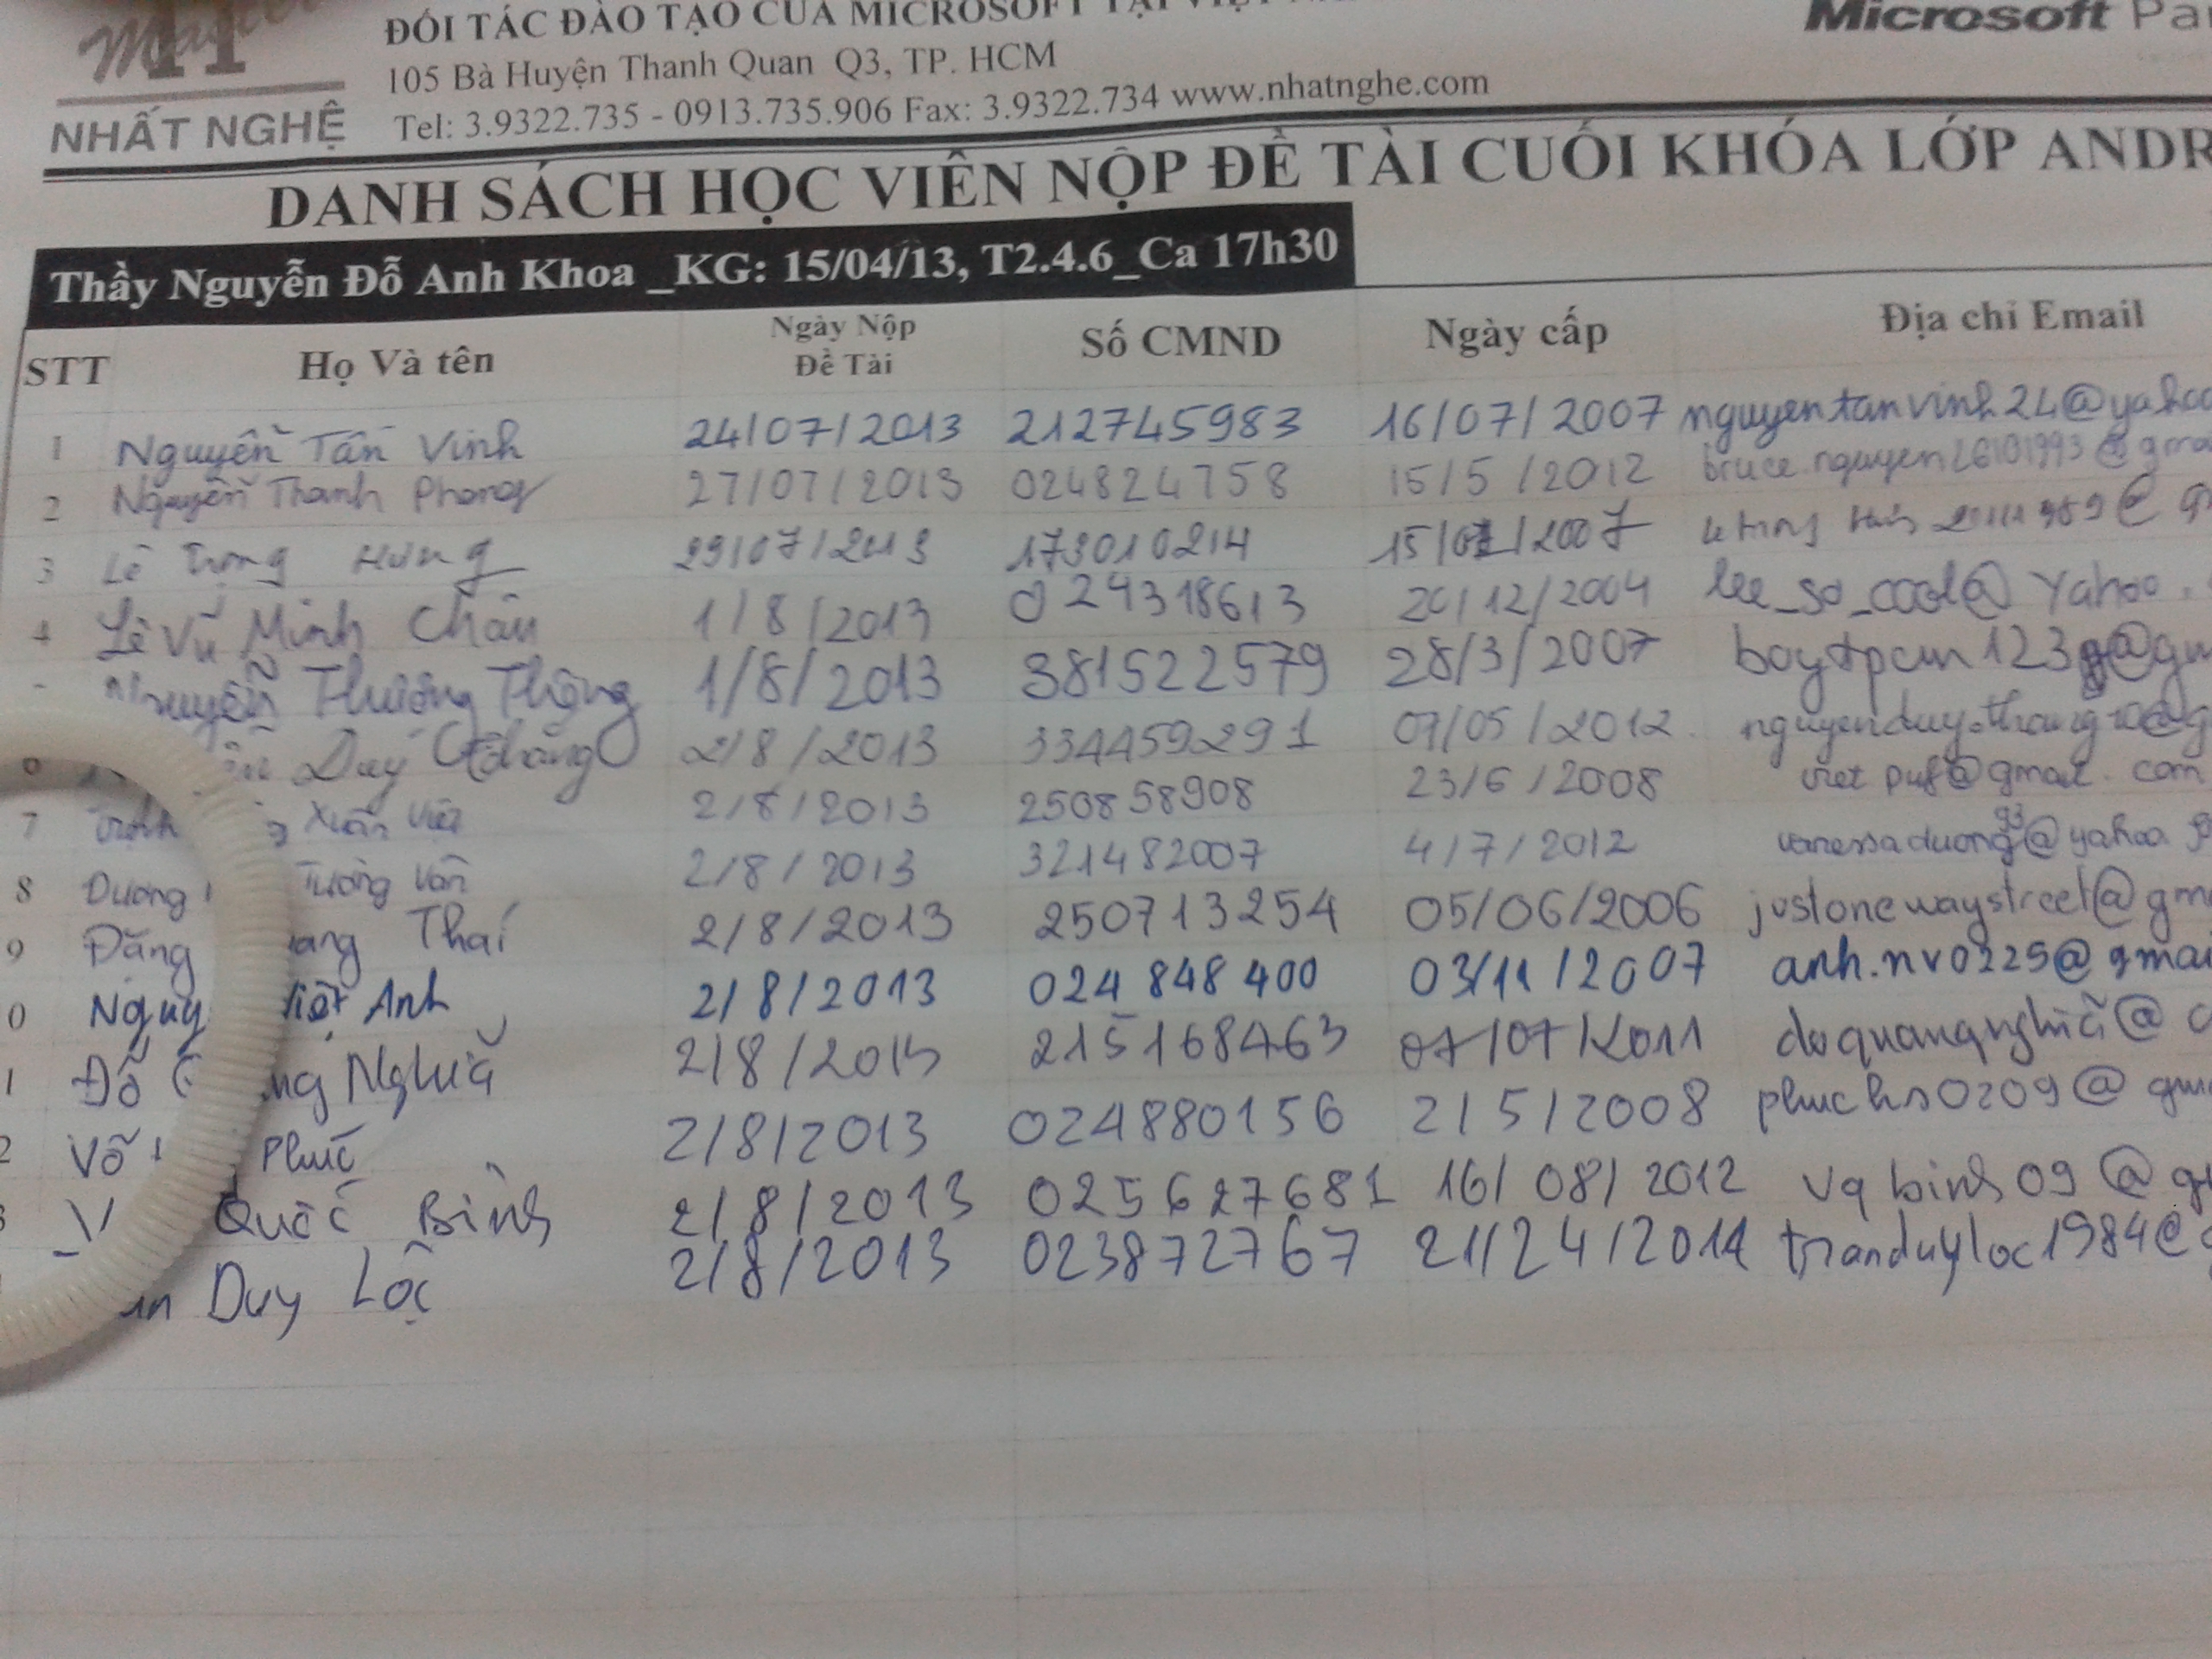 ĐỐI TÁC ĐÀO TẠO CỦA MICROSOFT TẠI
Microsoft
105 Bà Huyện Thanh Quan Q3, TP. HCM
NHẤT NGHỆ
Tel: 3.9322.735 - 0913.735.906 Fax: 3.9322.734 www.nhatnghe.com
DANH SÁCH HỌC VIÊN NỘP ĐỀ TÀI CUỐI KHÓA LỚP ANDR
Thầy Nguyễn Đỗ Anh Khoa _KG: 15/04/13, T2.4.6_Ca 17h30
STT Họ Và tên Ngày Nộp Đề Tài Số CMND Ngày cấp Địa chỉ Email
1 Nguyễn Tấn Vinh 24/07/2013 212745983 16/07/2007 nguyentanvinh24@yahoo
2 Nguyễn Thanh Phong 27/07/2013 024824758 15/5/2012
3 Lê Trọng Hưng 29/07/2013 173010214
4 Lê Vũ Minh Châu 1/8/2013 024318613 20/12/2004 lee_so_cool@Yahoo.
Thường Thông 1/8/2013 381522579 28/3/2007
Duy Thăng 2/8/2013 334459291 2012
7 Xuân Việt 2/8/2013 250858908 23/6/2008 vietpuf@gmail.com
8 Dương Tường Vân 2/8/2013 321482007 4/7/2012 vanessaduong93@yahoo
9 Đặng Thái 2/8/2013 250713254 05/06/2006 justonewaystreet@gm
0 Anh 2/8/2013 024848400 03/11/2007 anh.nv0225@gmai
1 Đỗ Nghĩa 2/8/2013 215168463 07/07/2011 doquangnghiã@
2 Võ Phúc 2/8/2013 024880156 2/5/2008 phuchs0209@gm
Quốc Bình 2/8/2013 025627681 16/08/2012 vqbinh09@g
Duy Lộc 2/8/2013 023872767 tranduyloc1984@